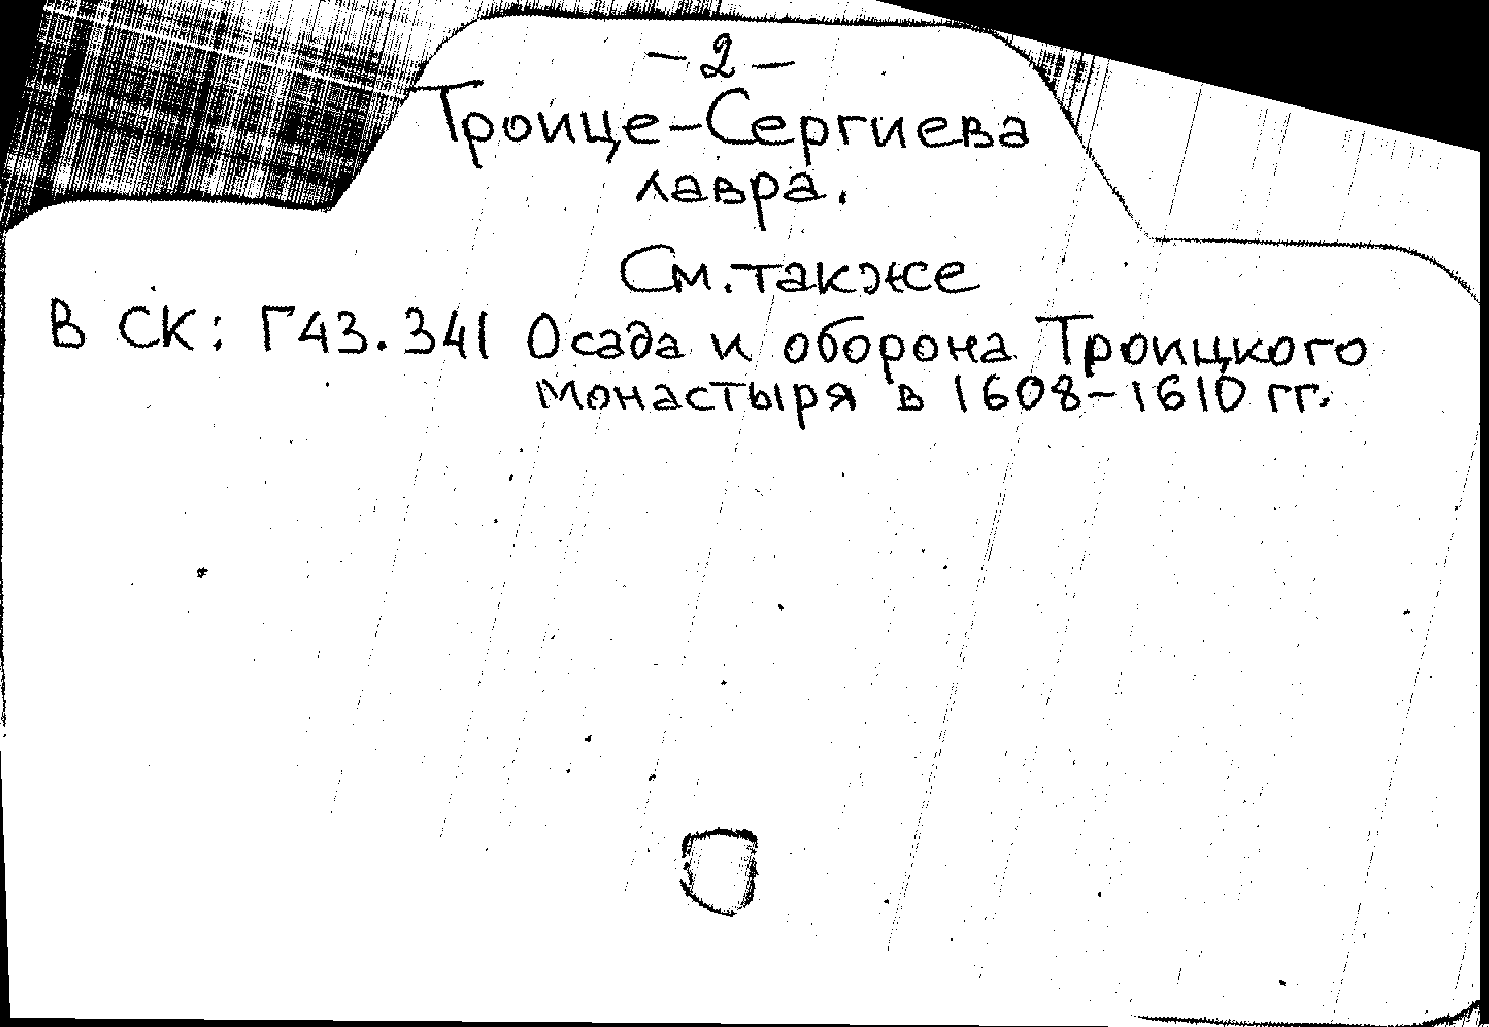 — 2 —
Троице-Сергиева
лавра.
См. также
В СК: Г43.341 Осада и оборона Троицкого
монастыря в 1608-1610 гг.